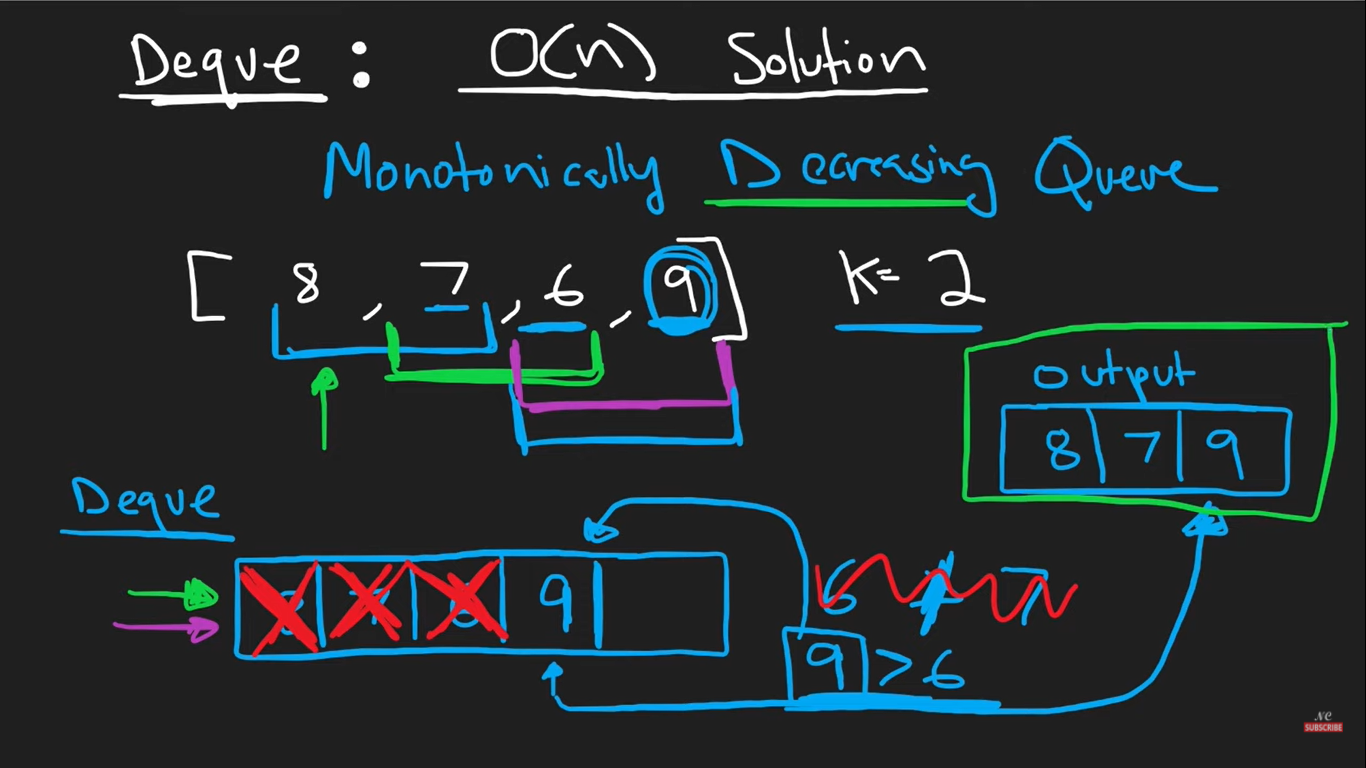 Deque : O(n) Solution
Monotonically Decreasing Queue
[ 8 , 7 , 6 , 9 ] K= 2
output
8 7 9
Deque
9
9 > 6
NC
SUBSCRIBE